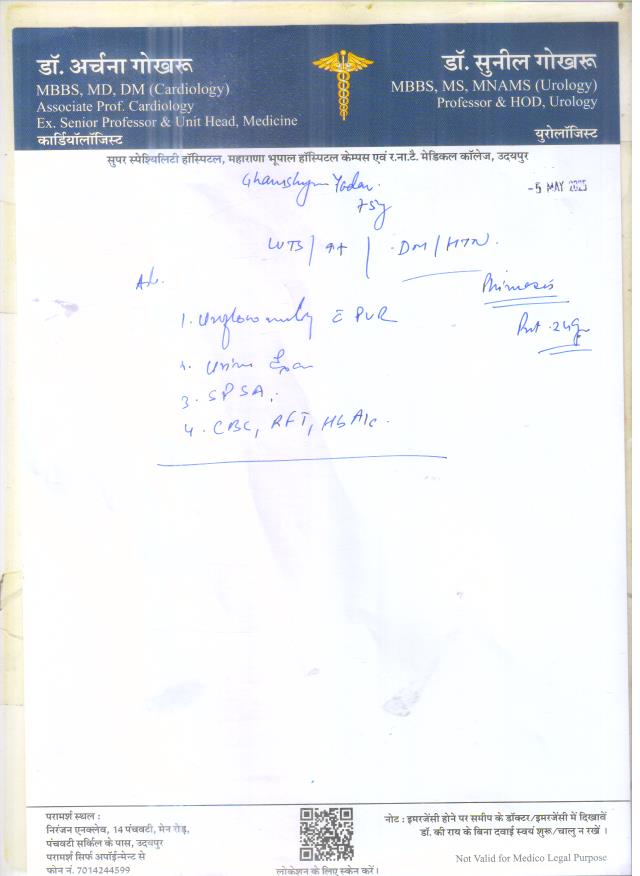 डॉ. अर्चना गोखरू
MBBS, MD, DM (Cardiology)
Associate Prof. Cardiology
Ex. Senior Professor & Unit Head, Medicine
कार्डियॉलॉजिस्ट
डॉ. सुनील गोखरू
MBBS, MS, MNAMS (Urology)
Professor & HOD, Urology
युरोलॉजिस्ट
सुपर स्पेश्यिलिटी हॉस्पिटल, महाराणा भूपाल हॉस्पिटल कैम्पस एवं र.ना.टै. मेडिकल कॉलेज, उदयपुर
Ghanshyam Yadav.
-5 MAY 2025
75y
LUTS / / DM / HTN.
Phimosis
Adv.
1. Uroflowmetry c̄ PVR
Prst .24g
2. Urine Exam
3. SPSA,
4. CBC, RFT, HbA1c.
परामर्श स्थल :
निरंजन एनक्लेव, 14 पंचवटी, मेन रोड़,
पंचवटी सर्किल के पास, उदयपुर
परामर्श सिर्फ अपॉईन्मेन्ट से
फोन नं. 7014244599
लोकेशन के लिए स्कैन करें।
नोट : इमरजेंसी होने पर समीप के डॉक्टर/इमरजेंसी में दिखावें
डॉ. की राय के बिना दवाई स्वयं शुरू/चालु न रखें ।
Not Valid for Medico Legal Purpose